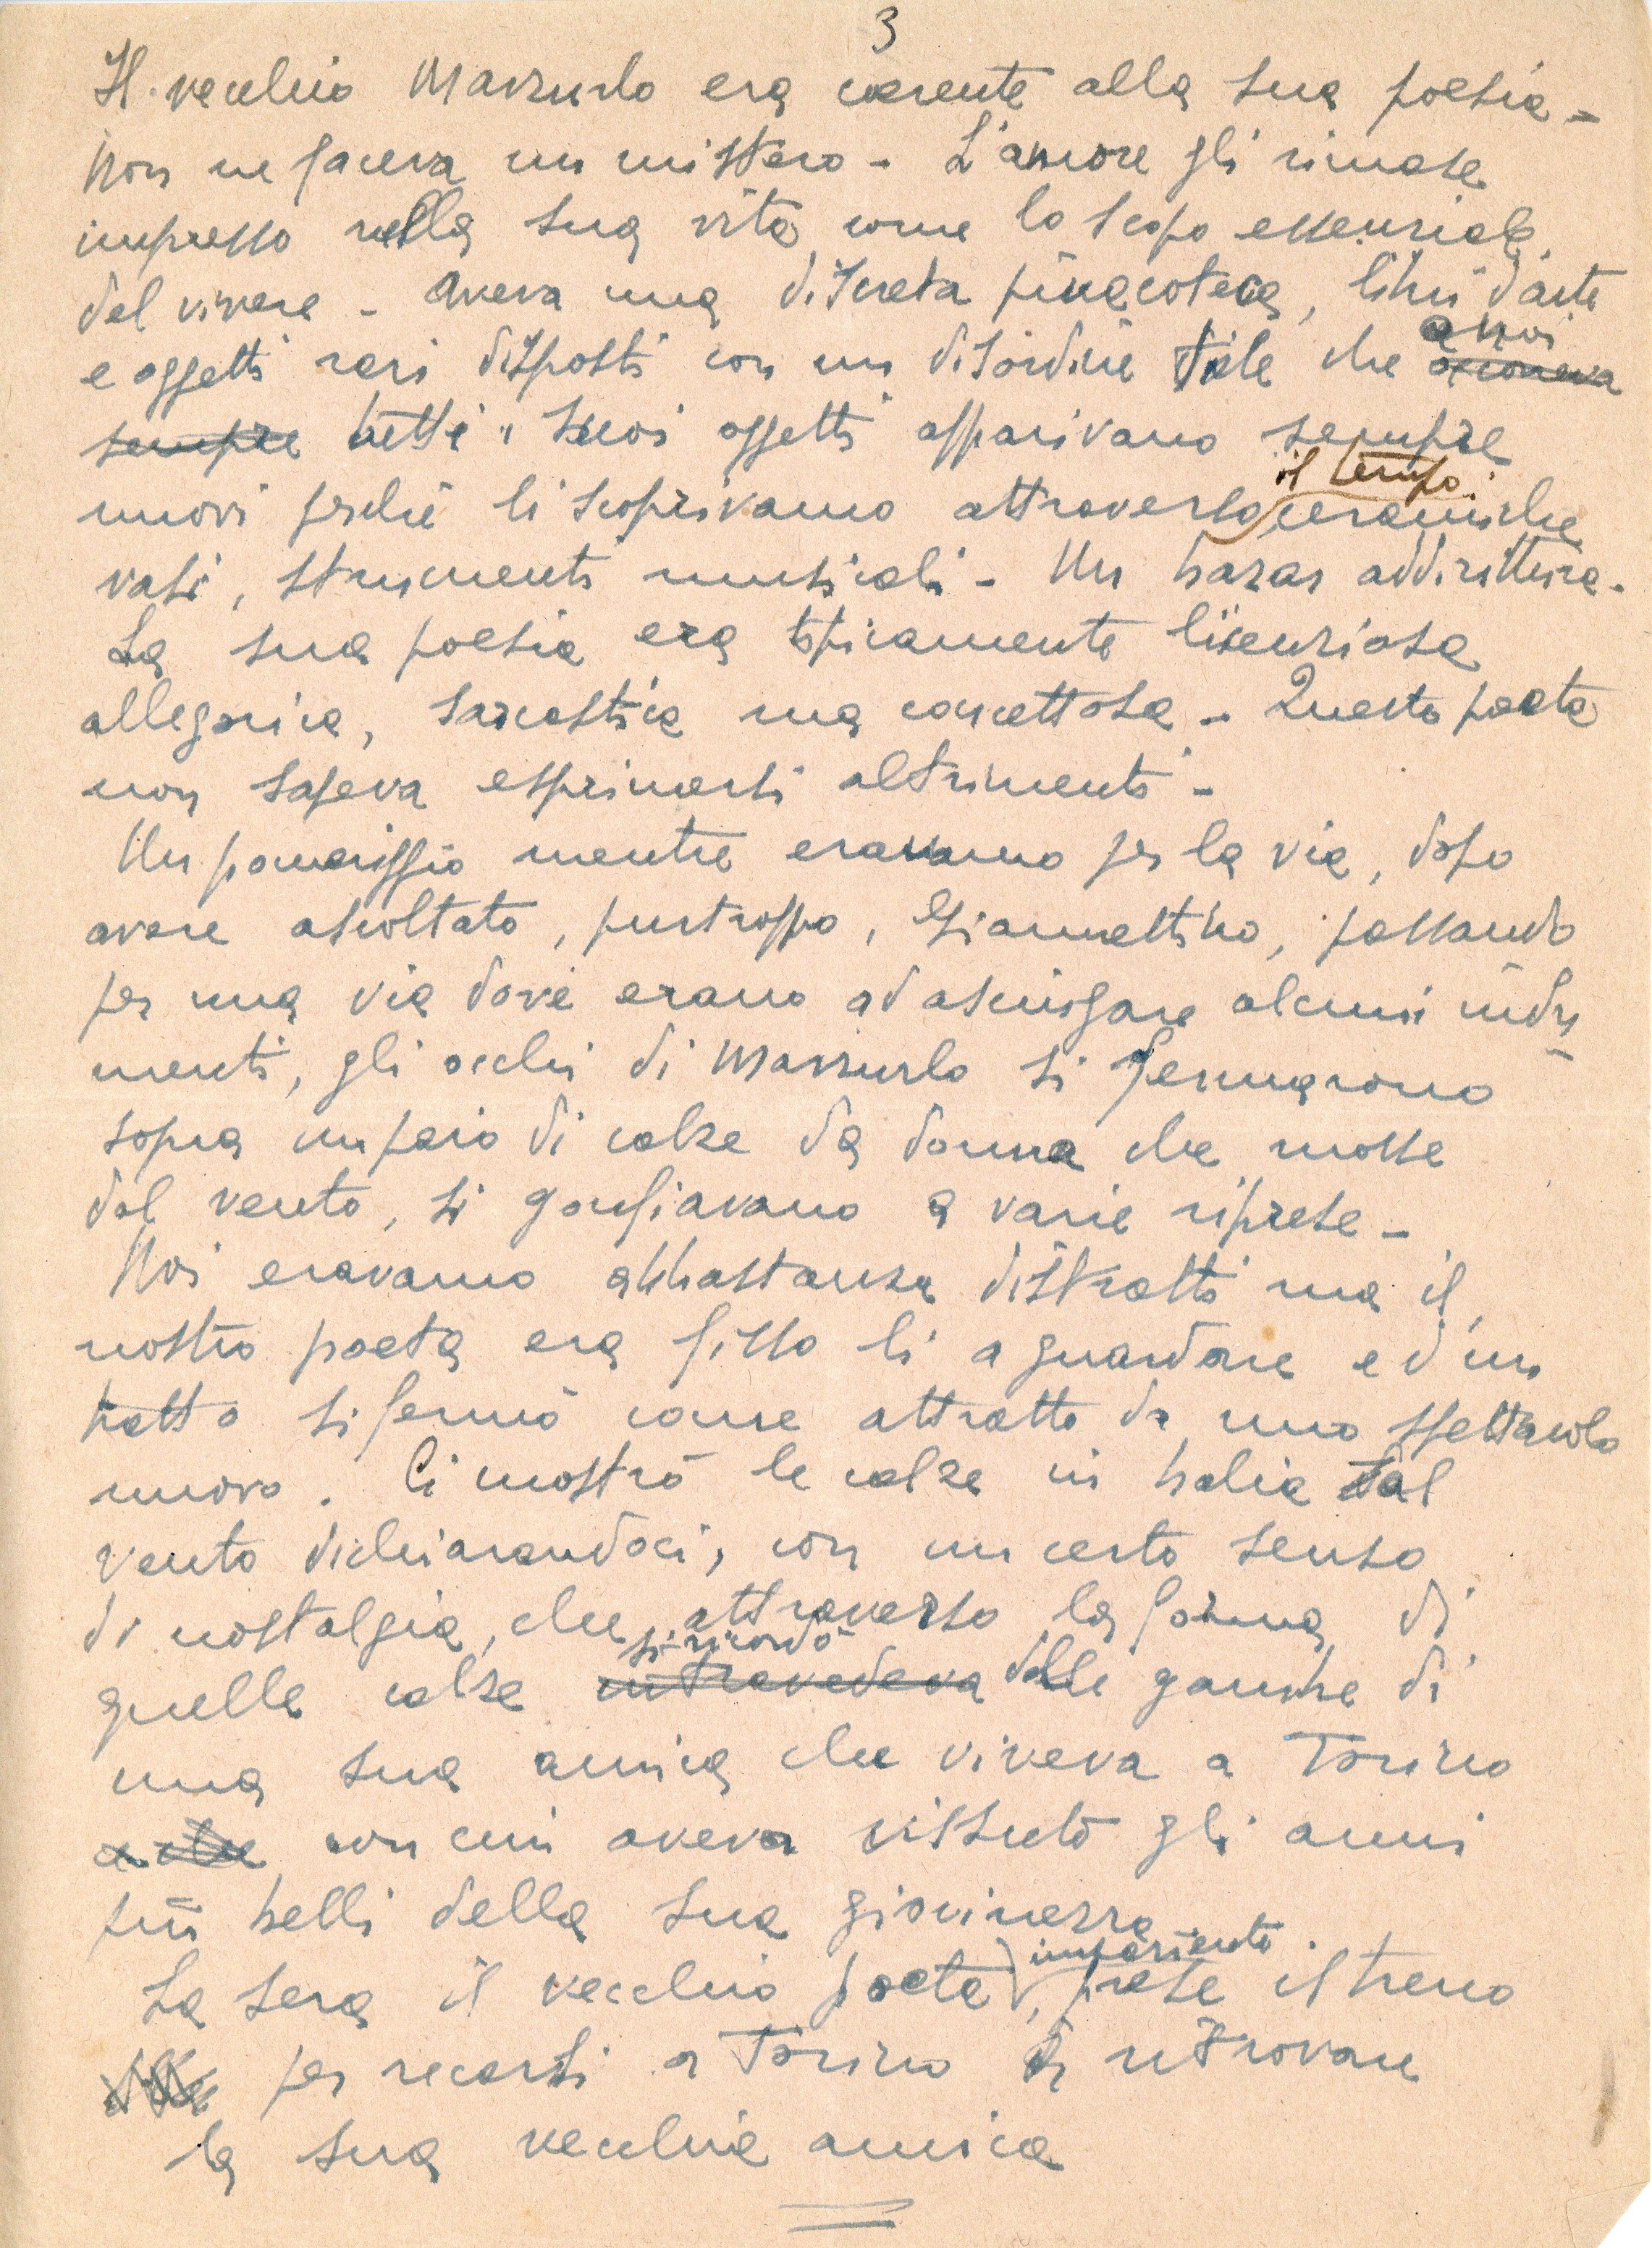 3
Il vecchio Mazzurlo era coerente alla sua poesia -
Non ne faceva un mistero - L'amore gli rimase
impresso nella sua vita come lo scopo essenziale
del vivere - Aveva una discreta pinacoteca, libri d'arte
a noi
e oggetti rari disposti con un disordine tale che
sempre tutti i suoi oggetti apparivano sempre
il tempo
nuovi perché li scoprivamo attraverso ceramiche
vasi, strumenti musicali - Un bazar addirittura -
La sua poesia era tipicamente licenziosa
allegorica, sarcastica ma concettosa - Questo poeta
non sapeva esprimersi altrimenti -
Un pomeriggio mentre eravamo per la via, dopo
avere ascoltato, purtroppo, Giannettino, passando
per una via dove erano ad asciugare alcuni indu-
menti, gli occhi di Mazzurlo si fermarono
sopra un paio di calze da donna che mosse
dal vento, si gonfiavano a varie riprese -
Noi eravamo abbastanza distratti ma il
nostro poeta era fisso li a guardare e d'un
tratto si fermò come attratto da uno spettacolo
nuovo. Ci mostrò le calze in balia dal
vento dichiarandoci, con un certo senso
di nostalgia, che attraverso la forma di
si ricordò
quelle calze intravedeva delle gambe di
una sua amica che viveva a Torino
e che con cui aveva vissuto gli anni
più belli della sua giovinezza -
impaziente
La sera il vecchio poeta, prese il treno
per recarsi a Torino a ritrovare
la sua vecchia amica